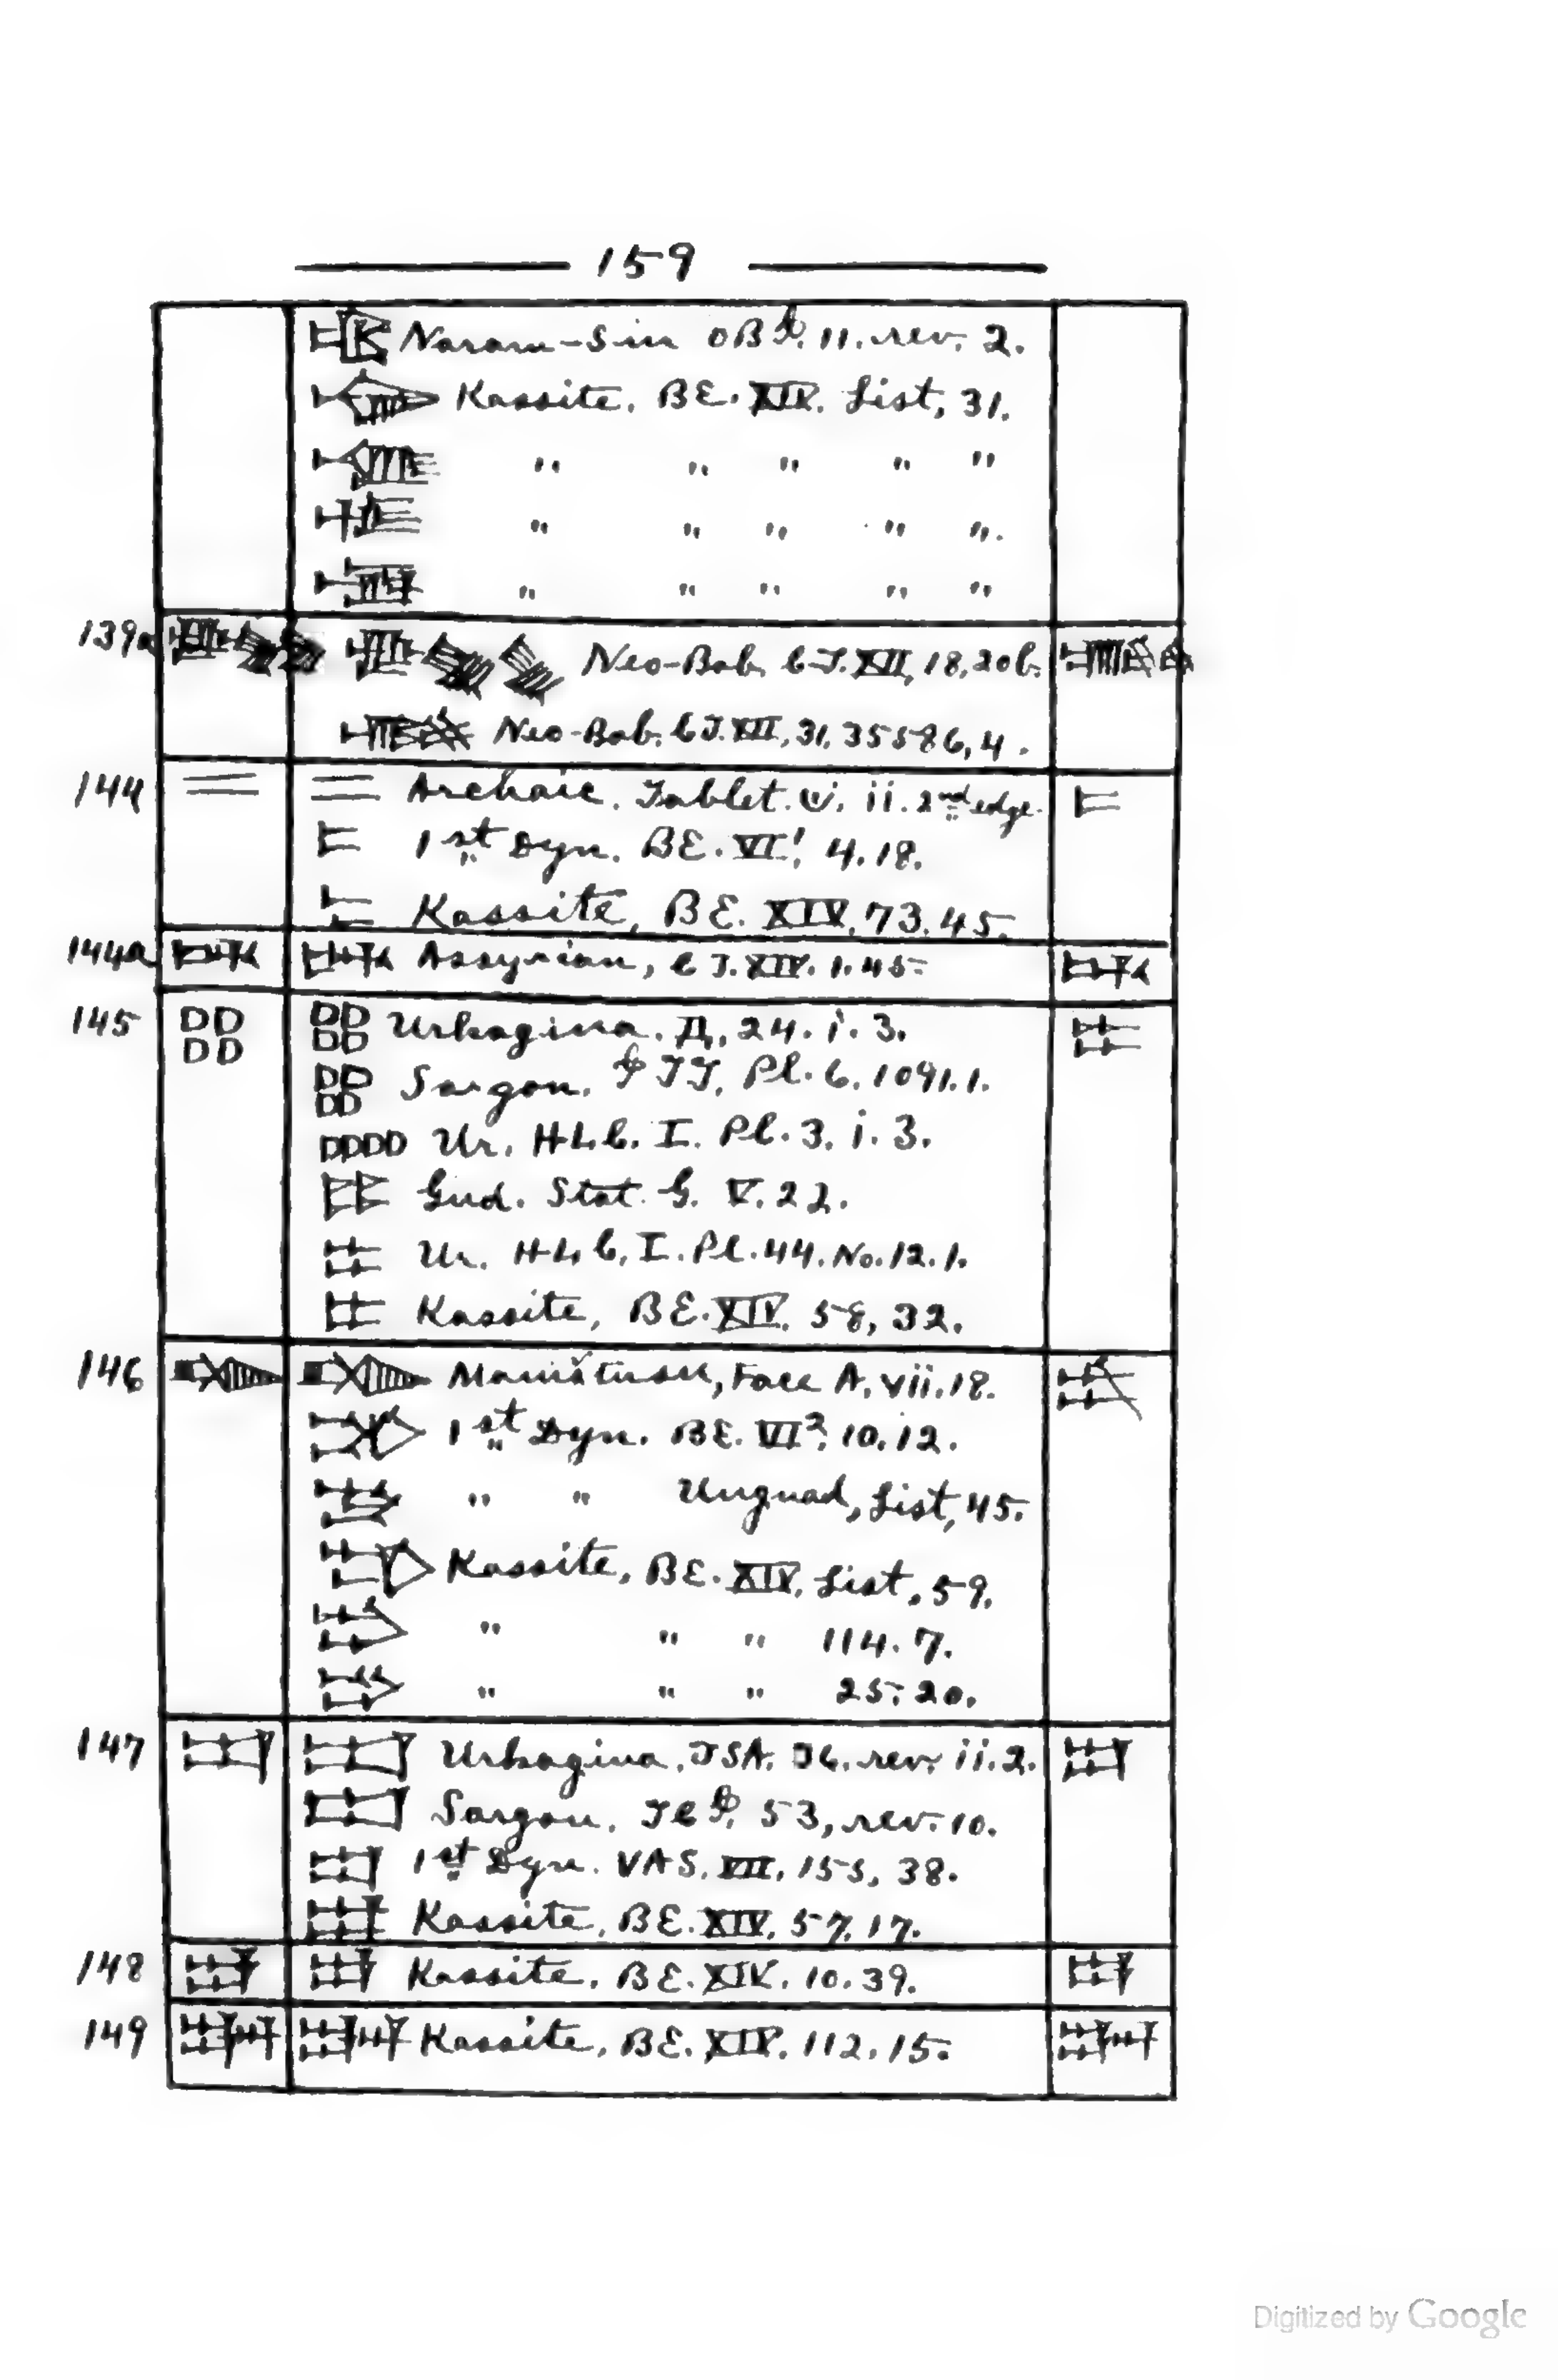 159
Naram-Sin OB 11. rev. 2.
Kassite. BE. XIV. List, 31.
" " " " "
" " " " ".
" " " " "
139a Neo-Bab. CT. XII, 18, 20b.
Neo-Bab. CT. XII, 31, 35586, 4.
144 Archaic. Tablet. ii. 2nd edge.
1st Dyn. BE. VI¹, 4. 18.
Kassite, BE. XIV, 73. 45.
144a Assyrian, CT. XIV. 1. 45.
145 Urkagina. Д, 24. i. 3.
Sargon. Pl. 6, 1091. 1.
Ur. HLC. I. Pl. 3. i. 3.
Gud. Stat. G. V. 22.
Ur. HLC, I. Pl. 44. No. 12. 1.
Kassite, BE. XIV. 58, 32.
146 Maništusu, Face A. vii. 18.
1st Dyn. BE. VI², 10. 12.
" " Ungnad, List, 45.
Kassite, BE. XIV, List, 59.
" " " 114. 7.
" " " 25. 20.
147 Urkagina. TSA. rev. ii. 2.
Sargon. 53, rev. 10.
1st Dyn. VAS. VII, 153, 38.
Kassite, BE. XIV, 57, 17.
148 Kassite. BE. XIV. 10. 39.
149 Kassite, BE. XIV. 112. 15.
Digitized by Google